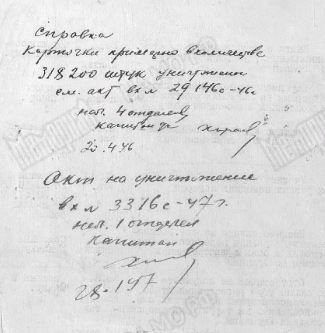 справка
Карточки примерно в количестве
318200 штук уничтожены
см. акт вх л 29146с-46г.
нач. 4 отделен.
капитан
25.4.46
Акт на уничтожение
вх л 3316с-47г.
нач. 1 отделен
капитан
28.1.47